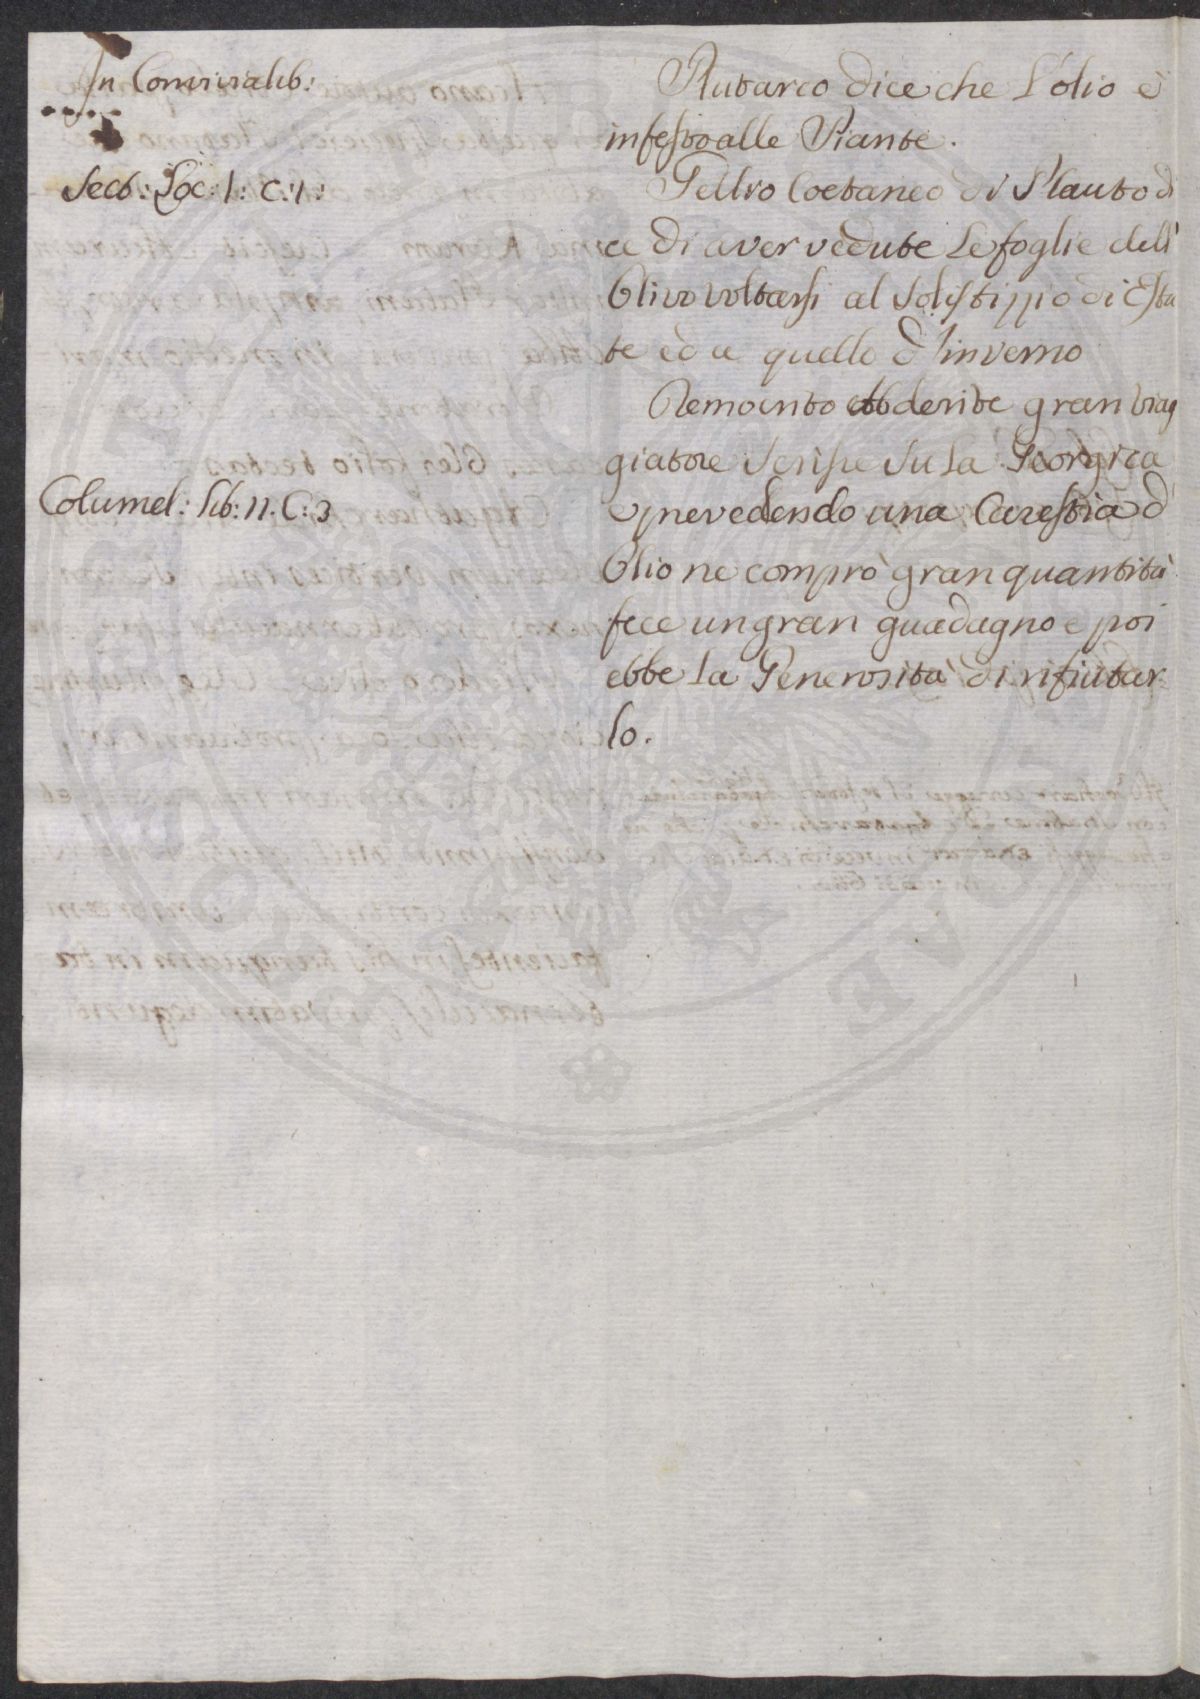 In Convivialib:
Sect: Loc: 1: C: 1:
Columel: lib: 11. C: 3
Plutarco dice che l'olio è
infesto alle Piante.
Gellio Coetaneo di Plauto di
ce di aver vedute le foglie dell'
Olivo voltarsi al Solistizzio di Esta
te ed a quello d'inverno
Democrito Abderite gran viag
giatore scrisse su la Georgica
e prevedendo una Carestia d'
Olio ne comprò gran quantità
fece un gran guadagno e poi
ebbe la Generosità di rifiutar
lo.